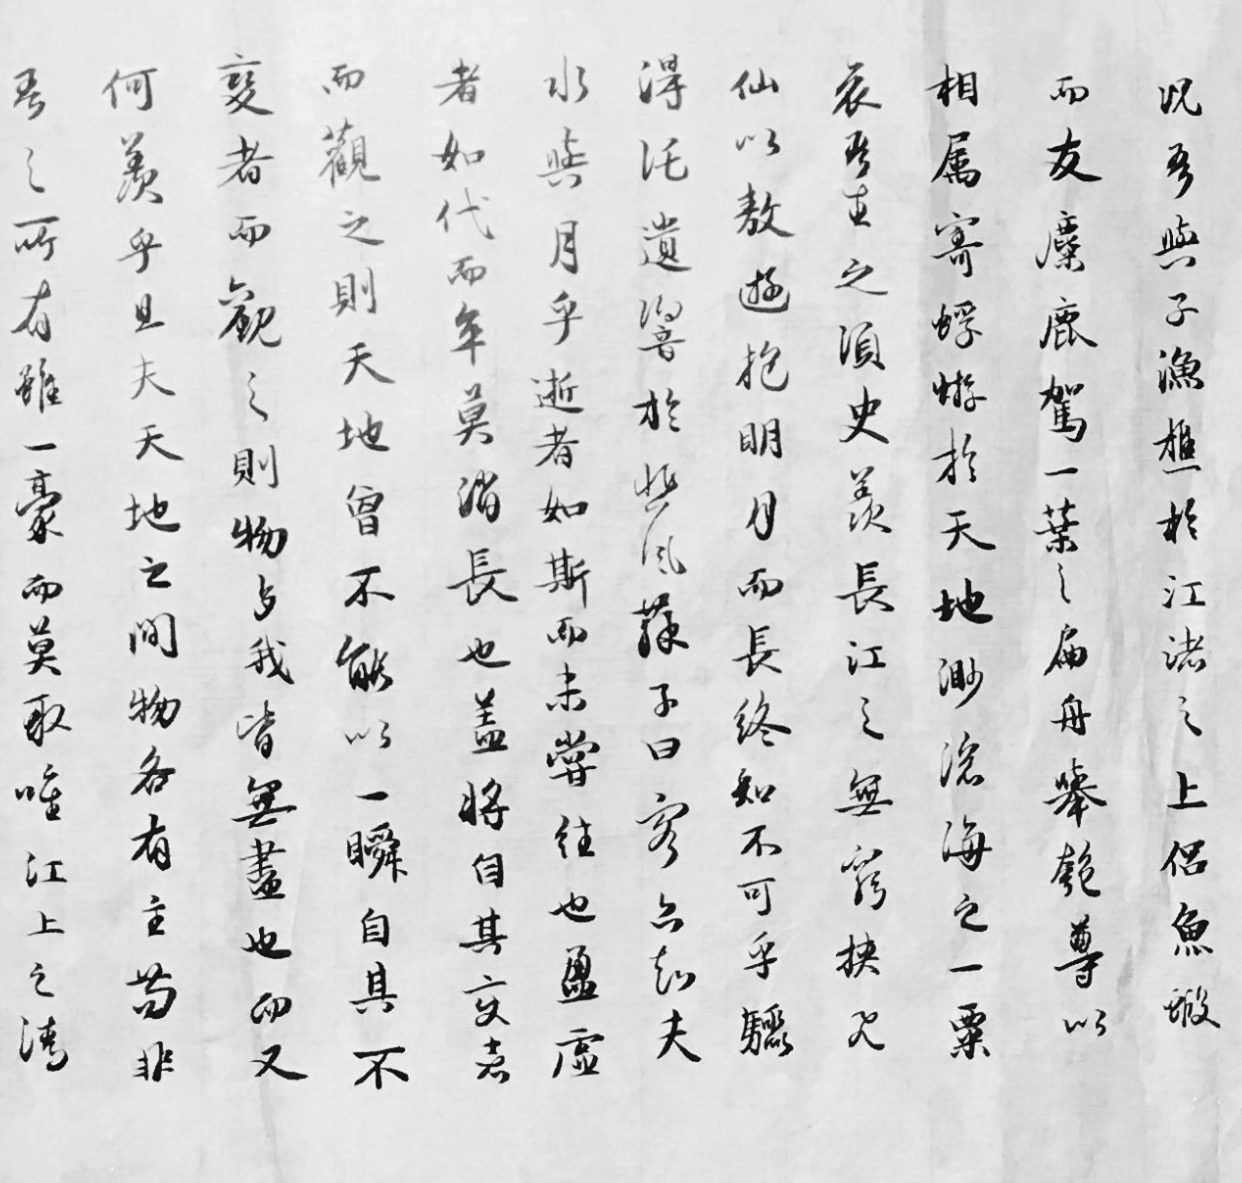 況吾與子漁樵於江渚之上侶魚蝦
而友麋鹿駕一葉之扁舟舉匏尊以
相属寄蜉蝣於天地渺滄海之一粟
哀吾生之須臾羨長江之無窮挟飛
仙以敖遊抱明月而長終知不可乎驟
得託遺響於悲風蘇子曰客亦知夫
水與月乎逝者如斯而未嘗往也盈虛
者如代而卒莫消長也盖將自其变者
而觀之則天地曾不能以一瞬自其不
變者而觀之則物与我皆無盡也而又
何羨乎且夫天地之間物各有主苟非
吾之所有雖一豪而莫取唯江上之清